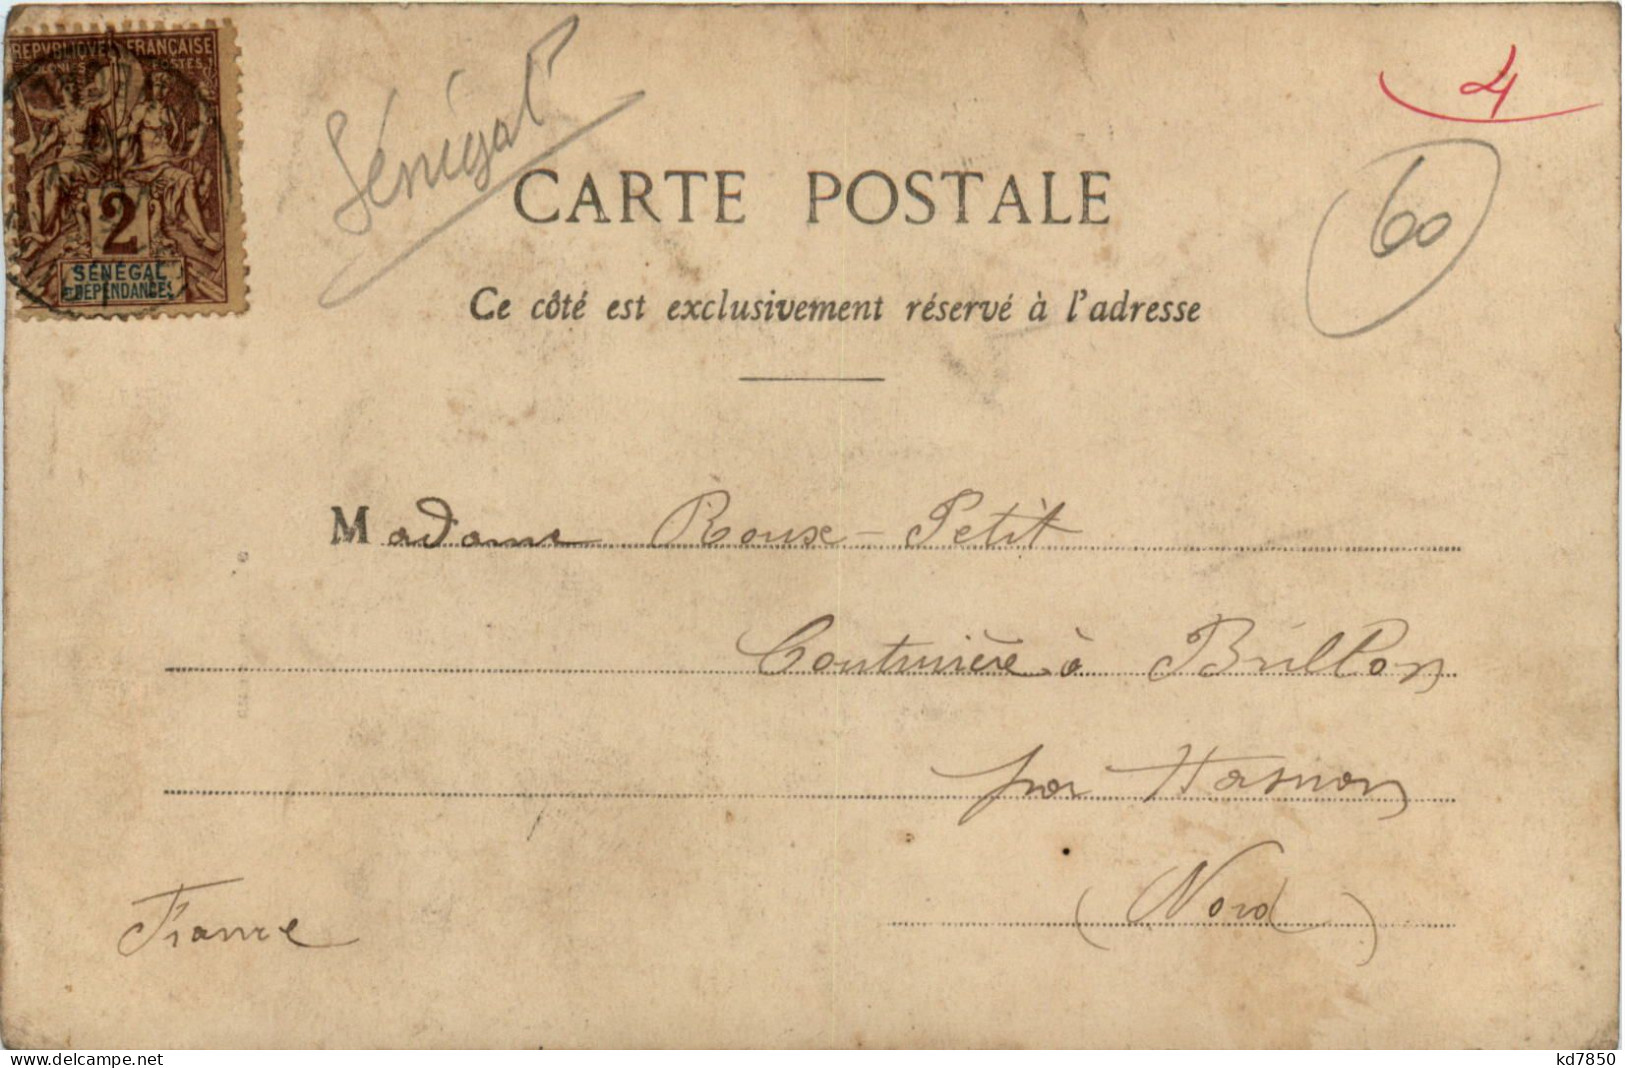 REPVBLIQVE FRANÇAISE
COLONIES POSTES
2
SÉNÉGAL
ET DÉPENDANCES
Sénégal
4
60
CARTE POSTALE
Ce côté est exclusivement réservé à l'adresse
Madame Roux-Petit
Couturière à Brillon
par Hasnon
(Nord)
France
www.delcampe.net
kd7850